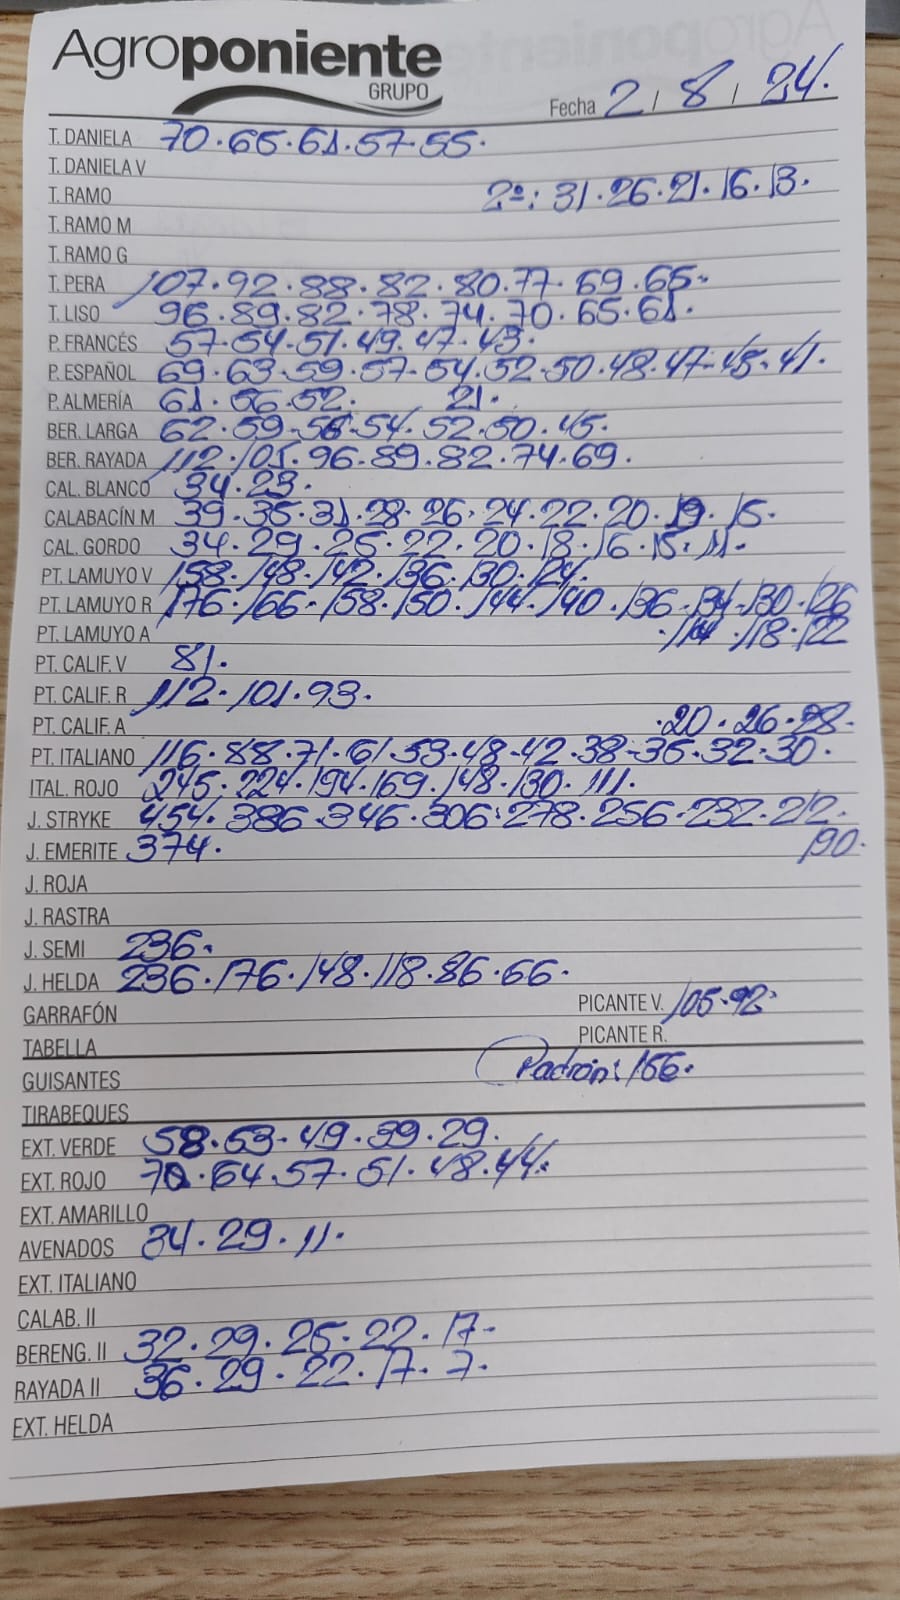 Agroponiente
GRUPO
Fecha 2 / 8 / 24.
T. DANIELA 70·65·61·57·55.
T. DANIELA V
T. RAMO 2º: 31·26·21·16·13.
T. RAMO M
T. RAMO G
T. PERA 107·92·88·82·80·77·69·65.
T. LISO 96·89·82·78·74·70·65·61.
P. FRANCÉS 57·54·51·49·47·43.
P. ESPAÑOL 69·63·59·57·54·52·50·48·47·45·41.
P. ALMERÍA 61·56·52. 21.
BER. LARGA 62·59·56·54·52·50·45.
BER. RAYADA 112·101·96·89·82·74·69.
CAL. BLANCO 34·23.
CALABACÍN M 39·35·31·28·26·24·22·20·19·15.
CAL. GORDO 34·29·25·22·20·18·16·15·11.
PT. LAMUYO V 158·148·142·136·130·124.
PT. LAMUYO R 176·166·158·150·144·140·136·134·130·126
PT. LAMUYO A ·114·118·122
PT. CALIF. V 81.
PT. CALIF. R 112·101·93.
PT. CALIF. A ·20·26·28.
PT. ITALIANO 116·88·71·61·53·48·42·38·35·32·30.
ITAL. ROJO 245·224·194·169·148·130·111.
J. STRYKE 454·386·346·306·278·256·232·212.
J. EMERITE 374. 190.
J. ROJA
J. RASTRA
J. SEMI 236.
J. HELDA 236·176·148·118·86·66.
GARRAFÓN PICANTE V. 105·92.
TABELLA PICANTE R.
GUISANTES Padrón: 166.
TIRABEQUES
EXT. VERDE 58·53·49·39·29.
EXT. ROJO 70·64·57·51·48·44.
EXT. AMARILLO
AVENADOS 34·29·11.
EXT. ITALIANO
CALAB. II
BERENG. II 32·29·25·22·17.
RAYADA II 36·29·22·17·7.
EXT. HELDA